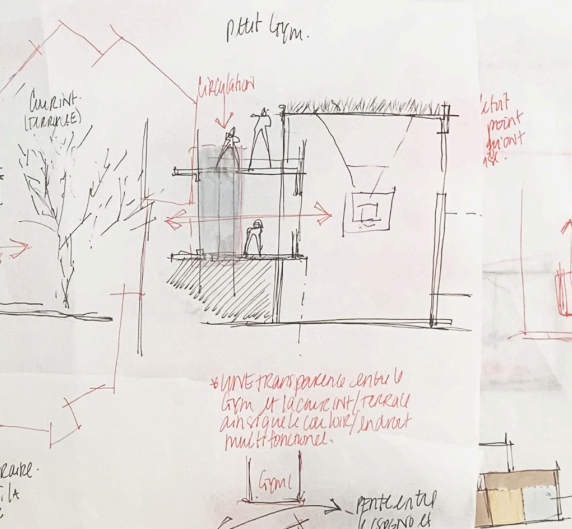 petit Gym.
Circulation
COUR INT.
(TERRASSE)
point
* UNE transparence entre le
Gym et la cour int/terrasse
ainsi que le couloir/endroit
multifonctionel.
Gym
PENTE ENTRE